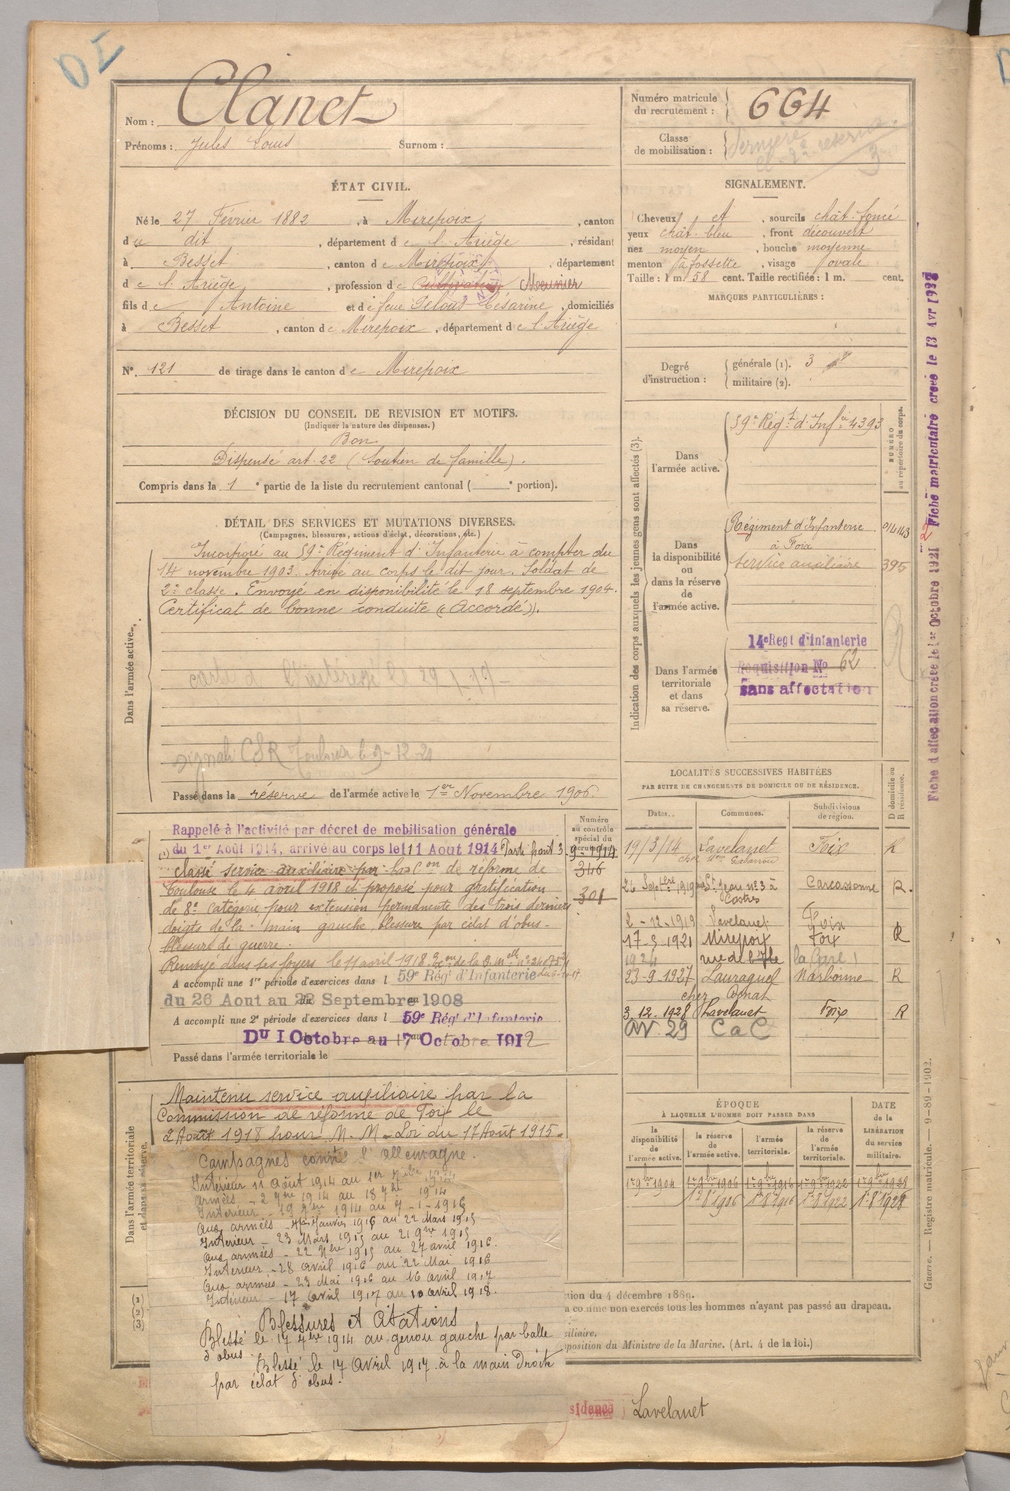 Nom : Clanet
Prénoms : Jules Louis Surnom :
ÉTAT CIVIL.
Né le 27 Février 1882, à Mirepoix, canton
du dit, département de l'Ariège, résidant
à Besset, canton de Mirepoix, département
de l'Ariège, profession de Cultivateur Meunier
fils de Antoine et de feue Césarine, domiciliés
à Besset, canton de Mirepoix, département de l'Ariège
N° 121 de tirage dans le canton de Mirepoix
DÉCISION DU CONSEIL DE REVISION ET MOTIFS.
(Indiquer la nature des dispenses.)
Bon
Dispensé art. 22 (Soutien de famille).
Compris dans la 1e partie de la liste du recrutement cantonal ( e portion).
DÉTAIL DES SERVICES ET MUTATIONS DIVERSES.
(Campagnes, blessures, actions d'éclat, décorations, etc.)
Dans l'armée active.
Incorporé au 59e Régiment d'Infanterie à compter du
14 novembre 1903. Arrivé au corps le dit jour. Soldat de
2e classe. Envoyé en disponibilité le 18 septembre 1904.
Certificat de bonne conduite "Accordé".
signalé CSR Toulouse le 9-12-20
Passé dans la réserve de l'armée active le 1er Novembre 1906.
Numéro au contrôle spécial du
Rappelé à l'activité par décret de mobilisation générale
du 1er Août 1914, arrivé au corps le 11 Aout 1914 Parti front 3.9-1914
classé service auxiliaire par la Con de réforme de
Toulouse le 4 avril 1918 et proposé pour gratification
de 8e catégorie pour extension permanente des trois derniers
doigts de la main gauche, blessure par éclat d'obus-
blessure de guerre.
346
301
Renvoyé dans ses foyers le 11 avril 1918
A accompli une 1re période d'exercices dans l 59e Rég' d'Infanterie
du 26 Aout au 22 Septembre 1908
A accompli une 2e période d'exercices dans l 59e Rég' d'Infanterie
Du 1 Octobre au 17 Octobre 1912
Passé dans l'armée territoriale le
Dans l'armée territoriale et dans sa réserve.
Maintenu service auxiliaire par la
Commission de réforme de Foix le
2 Août 1918 pour M. M - Loi du 17 Août 1915.
Campagnes contre l'Allemagne.
Intérieur 11 août 1914 au 1er 7bre 1914
Armées - 2 7bre 1914 au 18 7bre 1914
Intérieur - 19 7bre 1914 au 7-1-1916
Aux armées - Janvier 1916 au 22 Mars 1915
Intérieur - 23 Mars 1915 au 21 9bre 1915
Aux armées - 22 9bre 1915 au 27 avril 1916.
Intérieur - 28 avril 1916 au 22 Mai 1916
Aux armées - 23 Mai 1916 au 16 avril 1917
Intérieur - 17 avril 1917 au 10 avril 1918.
Blessures et Citations
Blessé le 17 7bre 1914 au genou gauche par balle
d'obus. Blessé le 17 Avril 1917 à la main Droite
par éclat d'obus.
Numéro matricule du recrutement : 664
Classe de mobilisation :
SIGNALEMENT.
Cheveux et, sourcils chât-foncé
yeux chât-bleu, front découvert
nez moyen, bouche moyenne
menton à fossette, visage ovale
Taille : 1 m. 58 cent. Taille rectifiée : 1 m. cent.
MARQUES PARTICULIÈRES :
Degré d'instruction : générale (1). 3
militaire (2).
Indication des corps auxquels les jeunes gens sont affectés (3).
Dans l'armée active. 59e Régt d'Infie 4393
NUMÉRO au répertoire du corps.
Dans la disponibilité ou dans la réserve de l'armée active.
Régiment d'Infanterie
à Foix
service auxiliaire 395
Dans l'armée territoriale et dans sa réserve.
14e Regt d'Infanterie
Requisition No 62
Sans affectation
Fiche d'affectation créée le 1er Octobre 1921
Fiche matriculaire créée le 13 Avr 1928
LOCALITÉS SUCCESSIVES HABITÉES
PAR SUITE DE CHANGEMENTS DE DOMICILE OU DE RÉSIDENCE.
Dates. Communes. Subdivisions de région. D domicile ou R résidence.
19/3/14 Lavelanet Foix
26 Septbre 1919 St Jean n° 3 à Castres Carcassonne R.
2-12-1919 Lavelanet Foix
17-3-1921 Mirepoix Foix R
1924 la Gare !
23-9-1927 Lauraguel Narbonne R
3.12.1928 Lavelanet Foix R
AV 29 CaC
ÉPOQUE
À LAQUELLE L'HOMME DOIT PASSER DANS
la disponibilité de l'armée active. la réserve de l'armée active. l'armée territoriale. la réserve de l'armée territoriale. DATE de la LIBÉRATION du service militaire.
1er 9bre 1904 1er 9bre 1906 1er 9bre 1916 1er 9bre 1922 1er 9bre 1928
1.8.1906 1.8.1916 1.8.1922 1.8.1928
Guerre. — Registre matricule. — 9-89-1902.
(1)
(2)
(3)
sion du 4 décembre 1889.
a comme non exercés tous les hommes n'ayant pas passé au drapeau.
xiliaire.
position du Ministre de la Marine. (Art. 4 de la loi.)
sidence Lavelanet